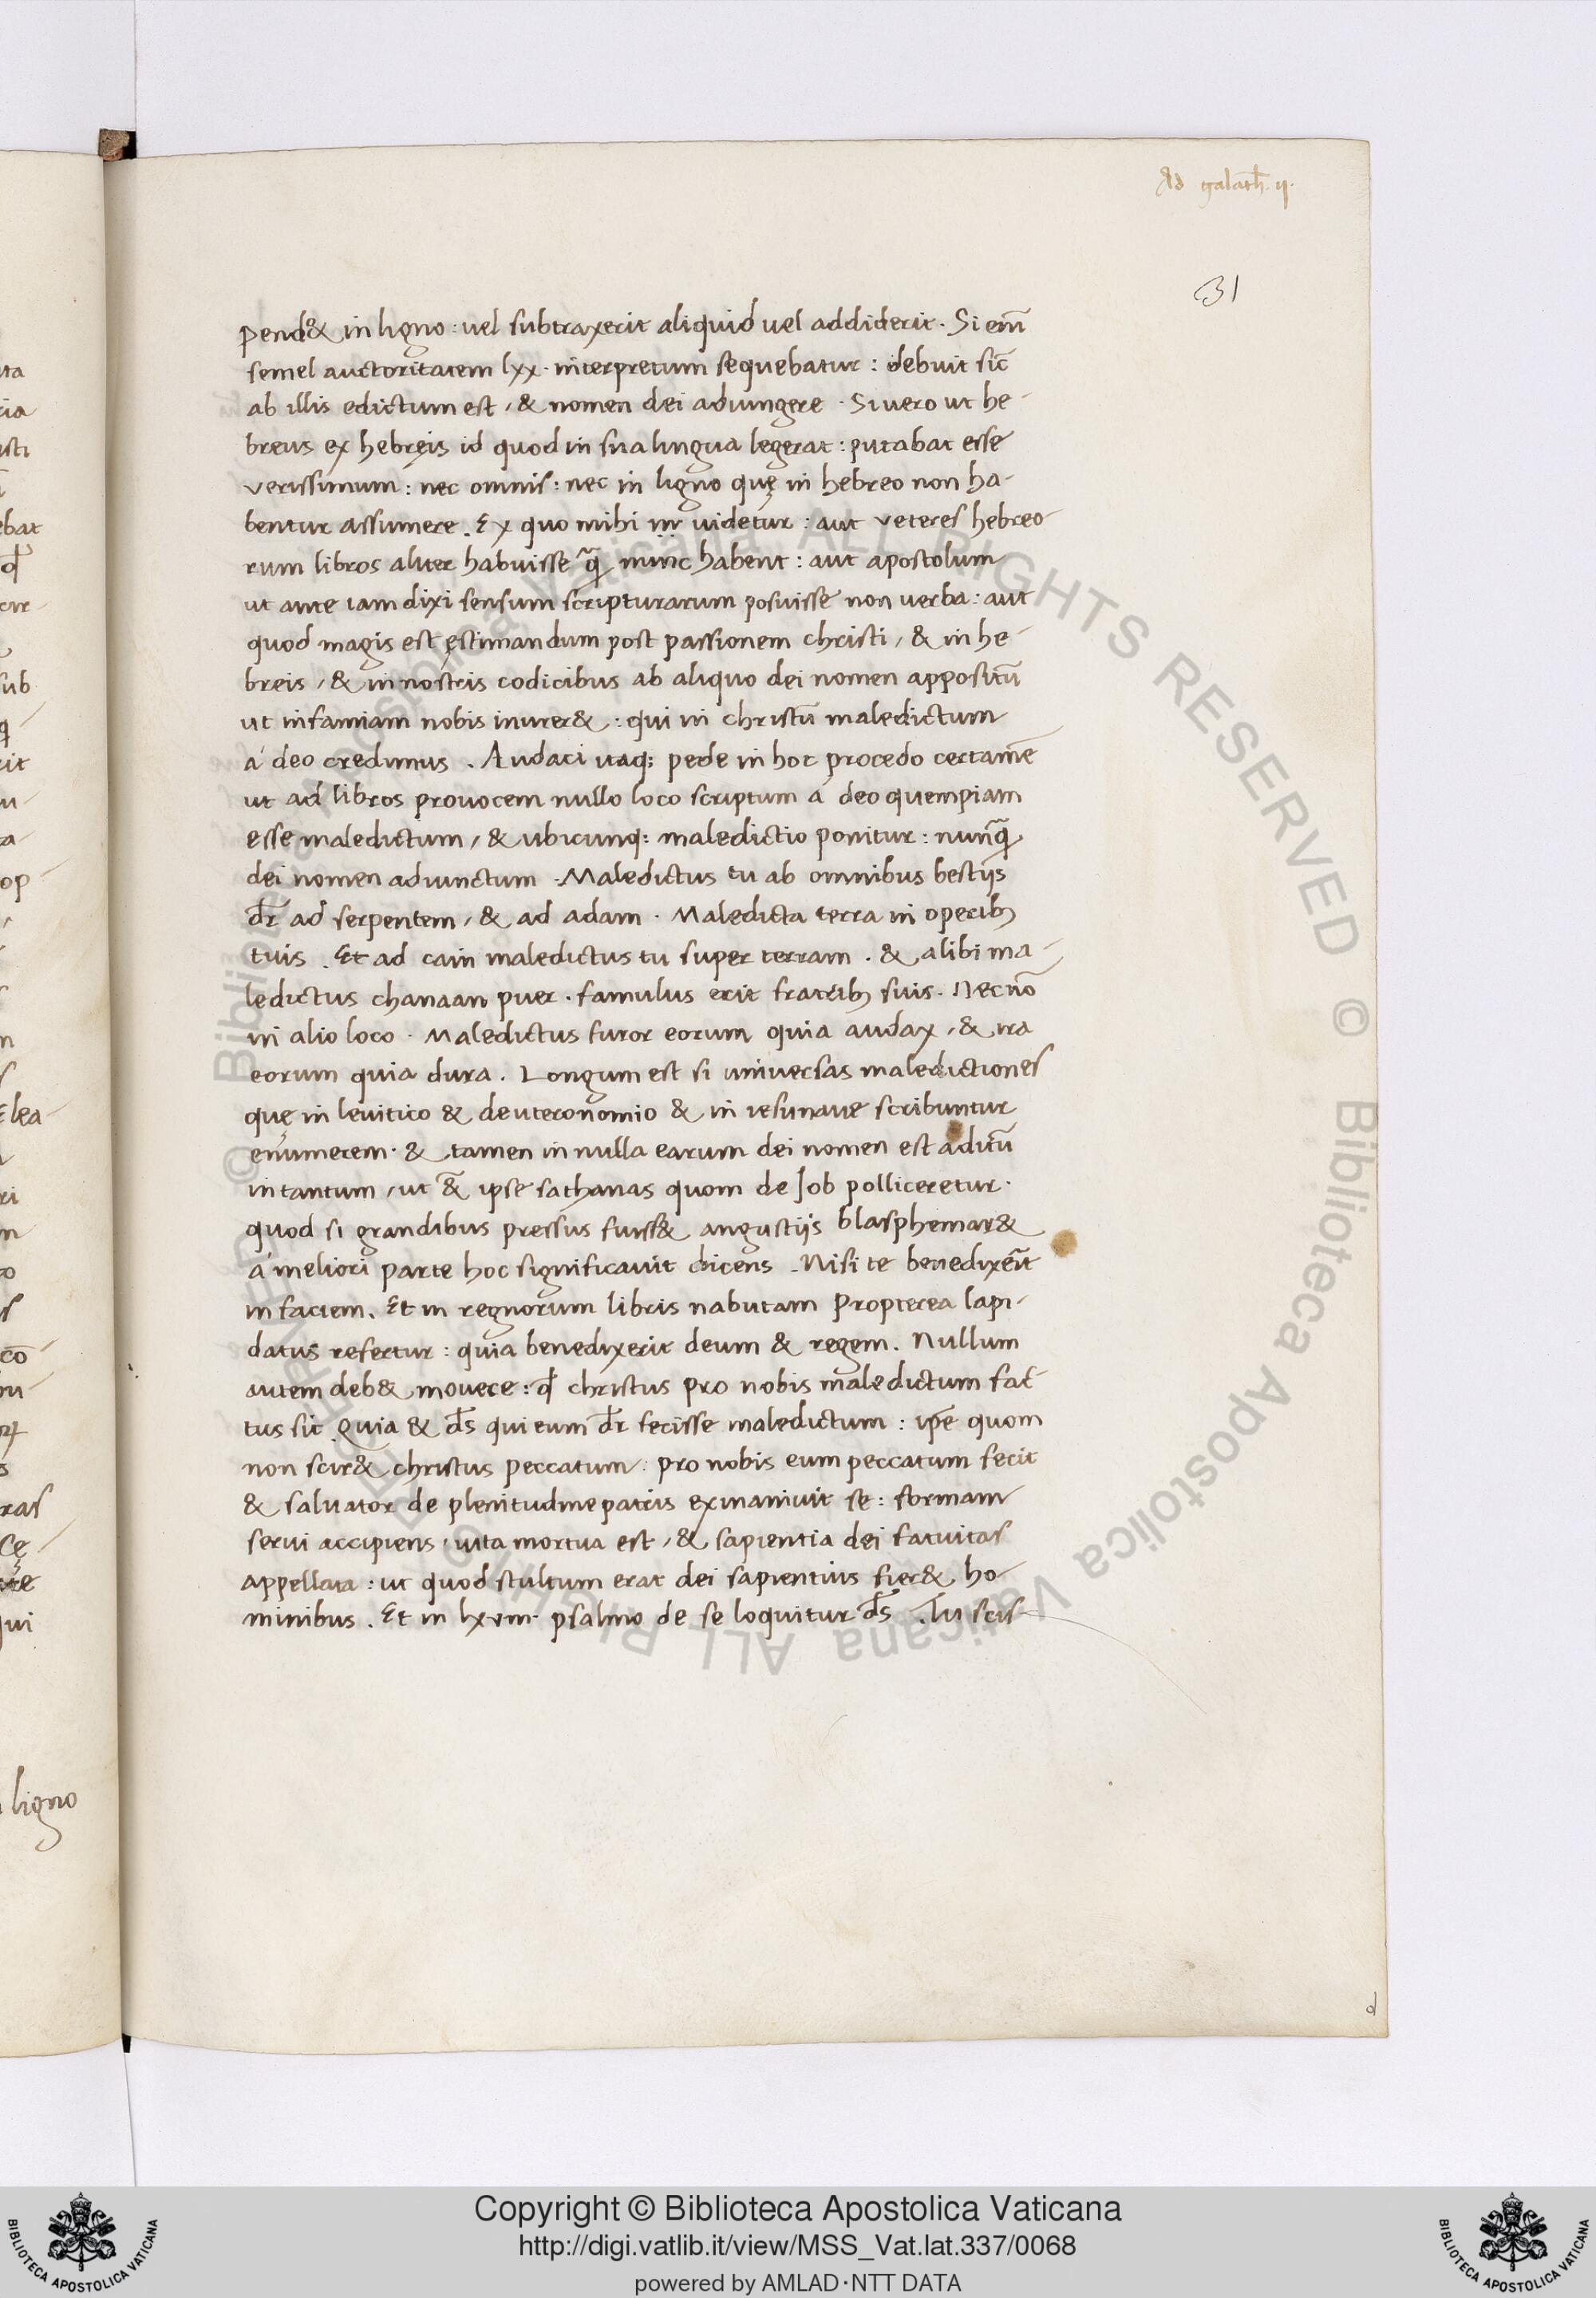 Ad galath̄. ij.
31
pend& in ligno : uel subtraxerit aliquid uel addiderit . Si em̄
semel auctoritatem lxx . interpretum sequebatur : debuit sic̄
ab illis edictum est , & nomen dei adiungere . Si uero ut he-
breus ex hebreis id quod in sua lingua legerat : putabat esse
verissimum : nec omnis : nec in ligno quę in hebreo non ha-
bentur assumere . Ex quo mihi uidetur : aut veteres hebreo
rum libros aliter habuisse q̄ nunc habent : aut apostolum
ut ante iam dixi sensum scripturarum posuisse non uerba : aut
quod magis est ęstimandum post passionem christi , & in he-
breis , & in nostris codicibus ab aliquo dei nomen appositū
ut infamiam nobis inurer& : qui in christū maledictum
á deo credimus . Audaci itaq; pede in hoc procedo certamē
ut ad libros prouocem nullo loco scriptum á deo quempiam
esse maledictum , & ubicunq; maledictio ponitur : nunq̄
dei nomen adiunctum . Maledictus tu ab omnibus bestijs
dr̄ ad serpentem , & ad adam . Maledicta terra in operib;
tuis . Et ad cain maledictus tu super terram . & alibi ma-
ledictus chanaan puer . famulus erit fratrib; suis . Nec nō
in alio loco . Maledictus furor eorum quia audax , & ira
eorum quia dura . Longum est si uniuersas maledictiones
quę in leuitico & deuteronomio & in iesu naue scribuntur
enumerem . & tamen in nulla earum dei nomen est aditū
in tantum , ut &̄ ipse sathanas quom de Job polliceretur .
quod si grandibus pressus fuiss& angustijs blasphemar&
á meliori parte hoc significauit dicens . Nisi te benedixēit
in faciem . Et in regnorum libris nabutam propterea lapi-
datus refertur : quia benedixerit deum & regem . Nullum
autem deb& mouere : qd̄ christus pro nobis maledictum fac-
tus sit . Quia & ds̄ qui eum dr̄ fecisse maledictum : ipē quom
non scir& christus peccatum : pro nobis eum peccatum fecit
& saluator de plenitudine patris exinaniuit se : formam
serui accipiens , uita mortua est , & sapientia dei fatuitas
appellata : ut quod stultum erat dei sapientius fier& ho-
minibus . Et in lxviii . psalmo de se loquitur ds̄ . Tu scis
d
ligno
© Biblioteca Apostolica Vaticana ALL RIGHTS RESERVED
Copyright © Biblioteca Apostolica Vaticana
http://digi.vatlib.it/view/MSS_Vat.lat.337/0068
powered by AMLAD·NTT DATA
BIBLIOTECA APOSTOLICA VATICANA
BIBLIOTECA APOSTOLICA VATICANA